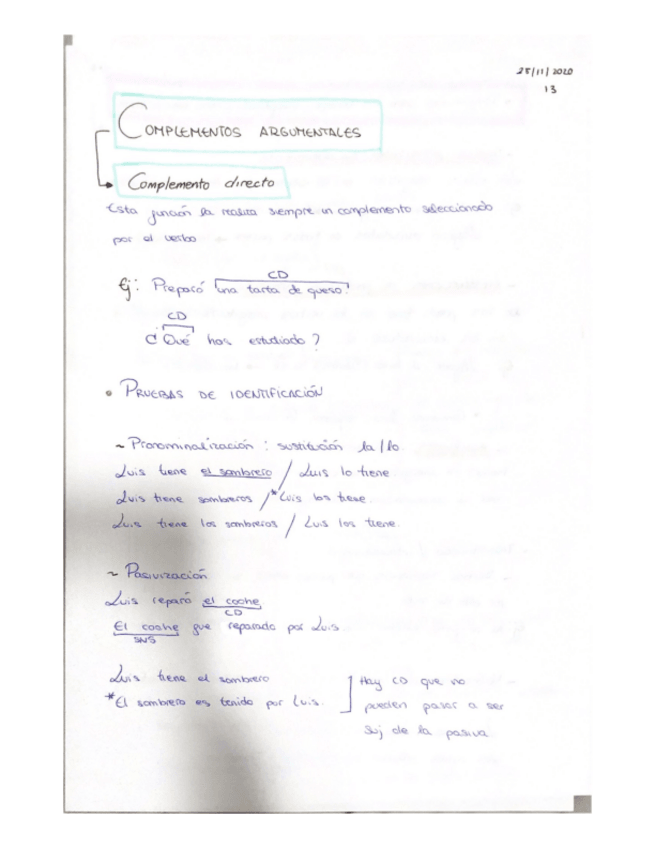 25/11/2020
13
COMPLEMENTOS ARGUMENTALES
Complemento directo
Esta función la realiza siempre un complemento seleccionado
por el verbo
CD
Ej: Preparó una tarta de queso.
CD
¿Qué has estudiado?
• PRUEBAS DE IDENTIFICACIÓN
~ Pronominalización: sustitución la/lo
Luis tiene el sombrero / Luis lo tiene
Luis tiene sombreros / *Luis los tiene.
Luis tiene los sombreros / Luis los tiene.
~ Pasivización
Luis reparó el coche
CD
El coche fue reparado por Luis.
Luis tiene el sombrero
*El sombrero es tenido por Luis.
Hay CD que no
pueden pasar a ser
Suj de la pasiva